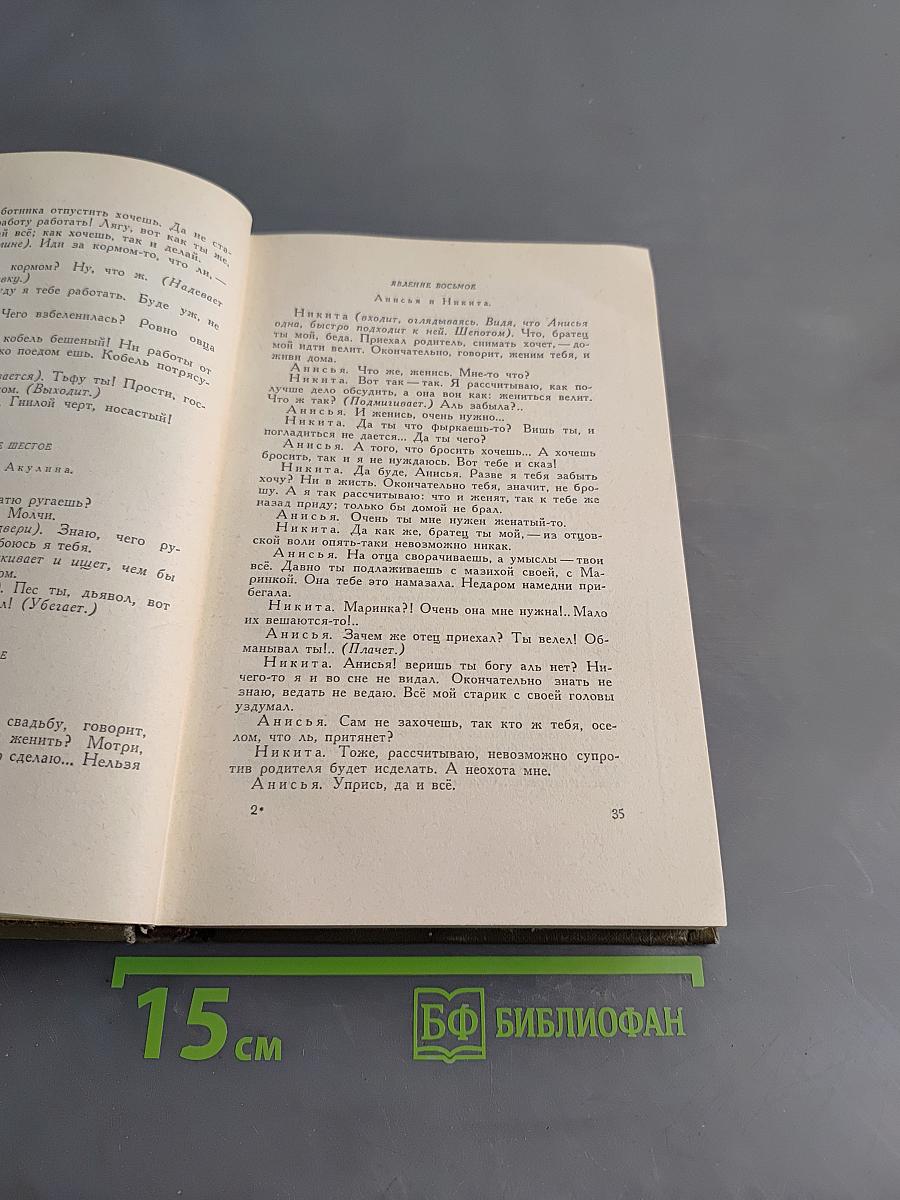 ботника отпустить хочешь. Да не ста-
аботу работать! Лягу, вот как ты же,
й всё; как хочешь, так и делай.
мине). Иди за кормом-то, что ли, —
кормом? Ну, что ж. (Надевает
вку.)
ду я тебе работать. Буде уж, не
Чего взбеленилась? Ровно овца
кобель бешеный! Ни работы от
ко поедом ешь. Кобель потрясу-
вается). Тьфу ты! Прости, гос-
ом. (Выходит.)
Гнилой черт, носастый!
Е ШЕСТОЕ
Акулина.
атю ругаешь?
Молчи.
двери). Знаю, чего ру-
боюсь я тебя.
кивает и ищет, чем бы
ом.
). Пес ты, дьявол, вот
л! (Убегает.)
Е
свадьбу, говорит,
женить? Мотри,
о сделаю... Нельзя
ЯВЛЕНИЕ ВОСЬМОЕ
Анисья и Никита.
Никита (входит, оглядываясь. Видя, что Анисья
одна, быстро подходит к ней. Шепотом). Что, братец
ты мой, беда. Приехал родитель, снимать хочет, — до-
мой идти велит. Окончательно, говорит, женим тебя, и
живи дома.
Анисья. Что же, женись. Мне-то что?
Никита. Вот так — так. Я рассчитываю, как по-
лучше дело обсудить, а она вон как: жениться велит.
Что ж так? (Подмигивает.) Аль забыла?..
Анисья. И женись, очень нужно...
Никита. Да ты что фыркаешь-то? Вишь ты, и
погладиться не дается... Да ты чего?
Анисья. А того, что бросить хочешь... А хочешь
бросить, так и я не нуждаюсь. Вот тебе и сказ!
Никита. Да буде, Анисья. Разве я тебя забыть
хочу? Ни в жисть. Окончательно тебя, значит, не бро-
шу. А я так рассчитываю: что и женят, так к тебе же
назад приду; только бы домой не брал.
Анисья. Очень ты мне нужен женатый-то.
Никита. Да как же, братец ты мой, — из отцов-
ской воли опять-таки невозможно никак.
Анисья. На отца сворачиваешь, а умыслы — твои
всё. Давно ты подлаживаешь с мазихой своей, с Ма-
ринкой. Она тебе это намазала. Недаром намедни при-
бегала.
Никита. Маринка?! Очень она мне нужна!.. Мало
их вешаются-то!..
Анисья. Зачем же отец приехал? Ты велел! Об-
манывал ты!.. (Плачет.)
Никита. Анисья! веришь ты богу аль нет? Ни-
чего-то я и во сне не видал. Окончательно знать не
знаю, ведать не ведаю. Всё мой старик с своей головы
уздумал.
Анисья. Сам не захочешь, так кто ж тебя, осе-
лом, что ль, притянет?
Никита. Тоже, рассчитываю, невозможно супро-
тив родителя будет исделать. А неохота мне.
Анисья. Упрись, да и всё.
2* 35
15 см
БФ БИБЛИОФАН